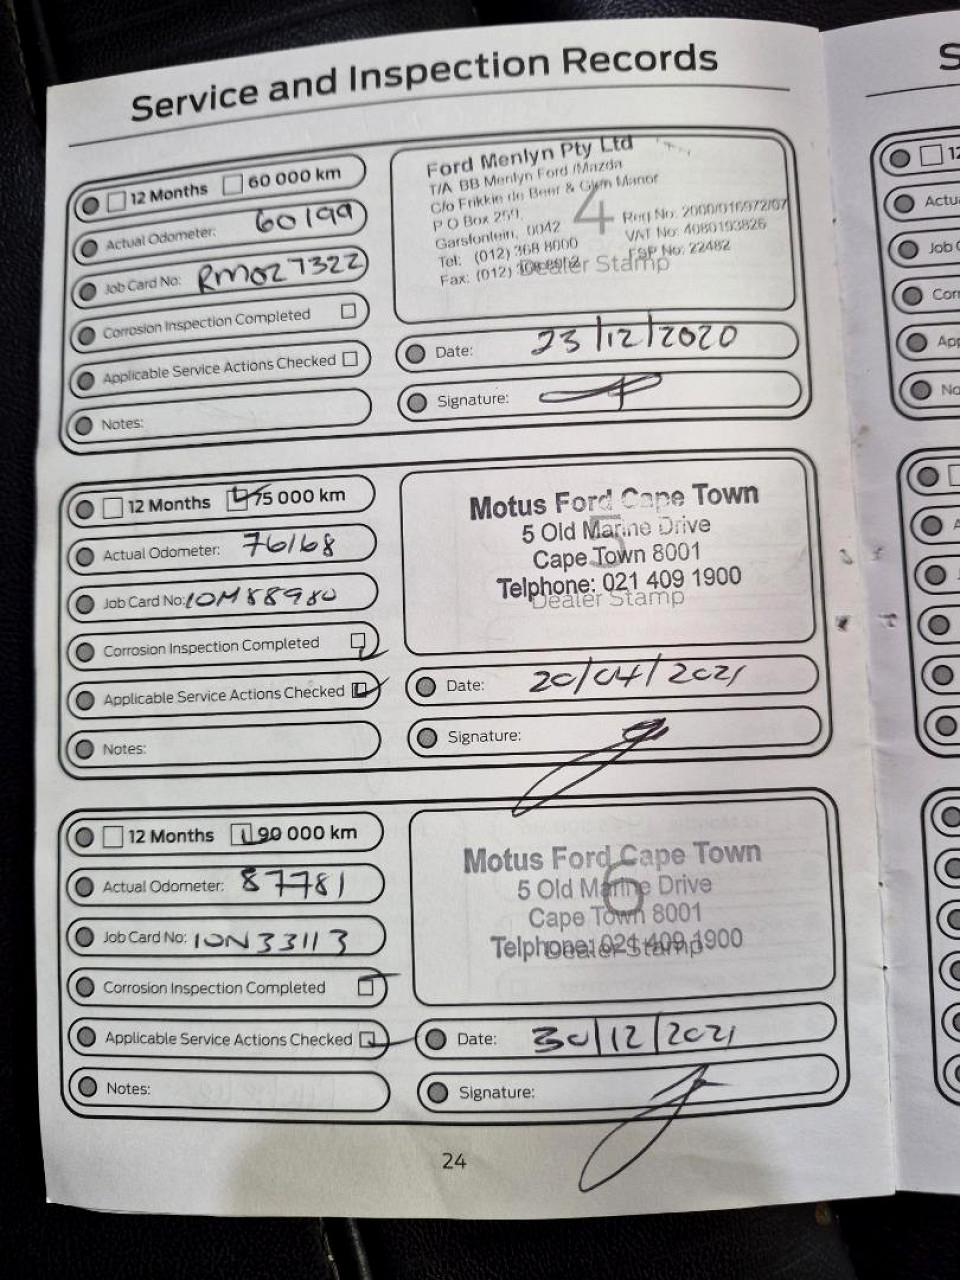 Service and Inspection Records
12 Months 60 000 km
Actual Odometer: 60199
Job Card No: RM027322
Corrosion Inspection Completed
Applicable Service Actions Checked
Notes:
Ford Menlyn Pty Ltd
T/A BB Menlyn Ford /Mazda
C/o Frikkie de Beer & Glen Manor
P O Box 259,
Garsfontein, 0042
Tel: (012) 368 8000
Fax: (012)
4
Reg No: 2000/016972/07
VAT No: 4080193826
FSP No: 22482
Dealer Stamp
Date: 23/12/2020
Signature:
12 Months 75 000 km
Actual Odometer: 76168
Job Card No: 10M88980
Corrosion Inspection Completed
Applicable Service Actions Checked
Notes:
Motus Ford Cape Town
5 Old Marine Drive
Cape Town 8001
Telphone: 021 409 1900
5
Dealer Stamp
Date: 20/04/2021
Signature:
12 Months 90 000 km
Actual Odometer: 87781
Job Card No: 10N33113
Corrosion Inspection Completed
Applicable Service Actions Checked
Notes:
Motus Ford Cape Town
5 Old Marine Drive
Cape Town 8001
Telphone: 021 409 1900
6
Dealer Stamp
Date: 30/12/2021
Signature:
24
S
12
Actu
Job C
Corr
App
No
A
J